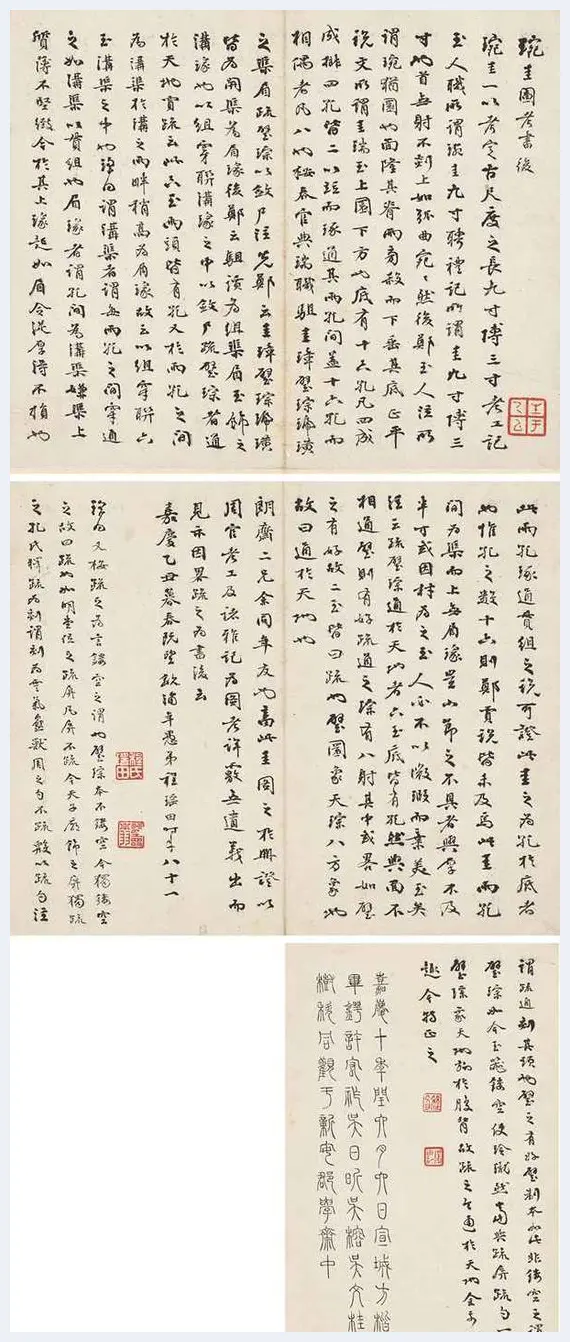 琬圭圖考書後
琬圭一以考定古尺度之長九寸博三寸考工記
玉人職所謂琬圭九寸聘禮記所謂圭九寸博三
寸也首無射不剡上如弧曲宛宛然後鄭玉人注所
謂琬猶圜也面隆其脊兩旁殺而下垂其底正平
說文所謂圭瑞玉上圜下方也底有十六孔凡四成
成排四孔皆二以組而琢通其兩孔間蓋十六孔而
相偶者凡八也按春官典瑞職駔圭璋璧琮琥璜
之渠眉疏璧琮以斂尸注先鄭云圭璋璧琮琥璜
皆為開渠為眉瑑後鄭云組讀為組渠眉玉飾之
溝瑑也以組穿聯溝瑑之中以斂尸疏璧琮者通
於天地賈疏云此六玉兩頭皆有孔又於兩孔之間
為溝渠於溝之兩畔稍高為眉瑑故云以組穿聯六
玉溝渠之中也瑤田謂溝渠者謂每兩孔之間穿通
之如溝渠以貫組也眉瑑者謂孔間為溝渠嫌渠上
質薄不堅緻令於其上瑑起如眉令混厚得不損也
此兩孔瑑通貫組之說可證此圭之為孔於底者
也惟孔之數十六則鄭賈說皆未及焉此圭兩孔
間為渠而上無眉瑑豈小節之不具者與厚不及
半寸或因材為之玉人亦不以微瑕而棄美玉矣
注云疏璧琮通於天地者六玉底皆有孔然與面不
相通璧則有好疏通之琮有八射其中或畧如璧
之有好故二玉皆曰疏也璧圜象天琮八方象地
故曰通於天地也
朗齋二兄余同年友也高此圭圖之於冊證以
周官考工及諸雜記為圖考詳覈無遺義出而
見示因畧疏之為書後云
嘉慶乙丑暮春既望歙浦年愚弟程瑤田時年八十一
瑤田又按疏之為言鏤空之謂也璧琮本不鏤空今獨鏤空
之故曰疏也如明堂位之疏屏凡屏不疏今天子廟飾之屏獨疏
之孔氏釋疏為刻謂刻為雲氣蟲獸周之勺不疏殷以疏勺注
謂疏通刻其頭也璧之有好璧制本如此非鏤空之謂
璧琮如今玉器鏤空使玲瓏然當與疏屏疏勺一
璧琮象天地施於腹背故疏之令通於天地全象
趣今特正之
嘉慶十年閏六月六日宣城方楷